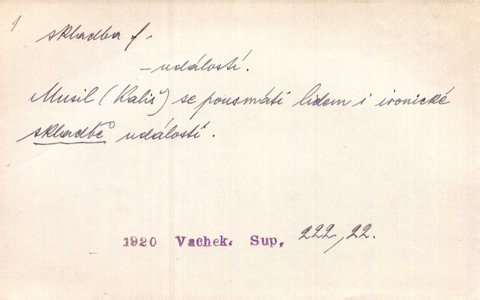 1
skladba f.
– událostí.
Musil (Kališ) se pousmáti lidem i ironické
skladbě událostí.
1920 Vachek. Sup. 222, 22.